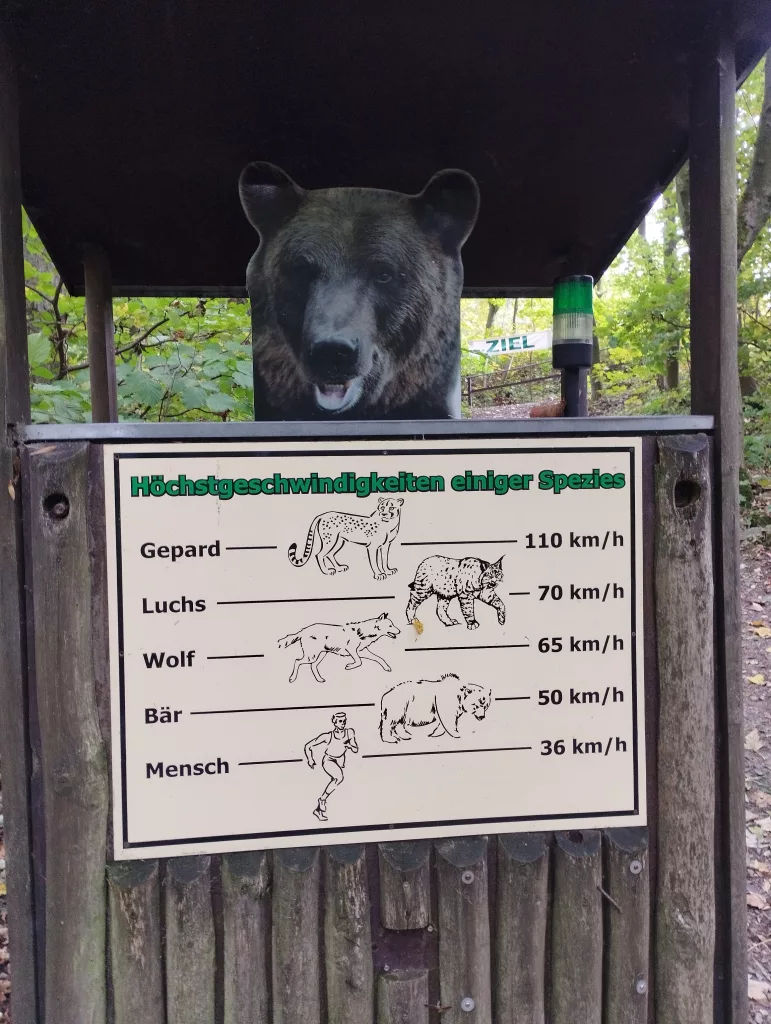 ZIEL
Höchstgeschwindigkeiten einiger Spezies
Gepard 110 km/h
Luchs 70 km/h
Wolf 65 km/h
Bär 50 km/h
Mensch 36 km/h